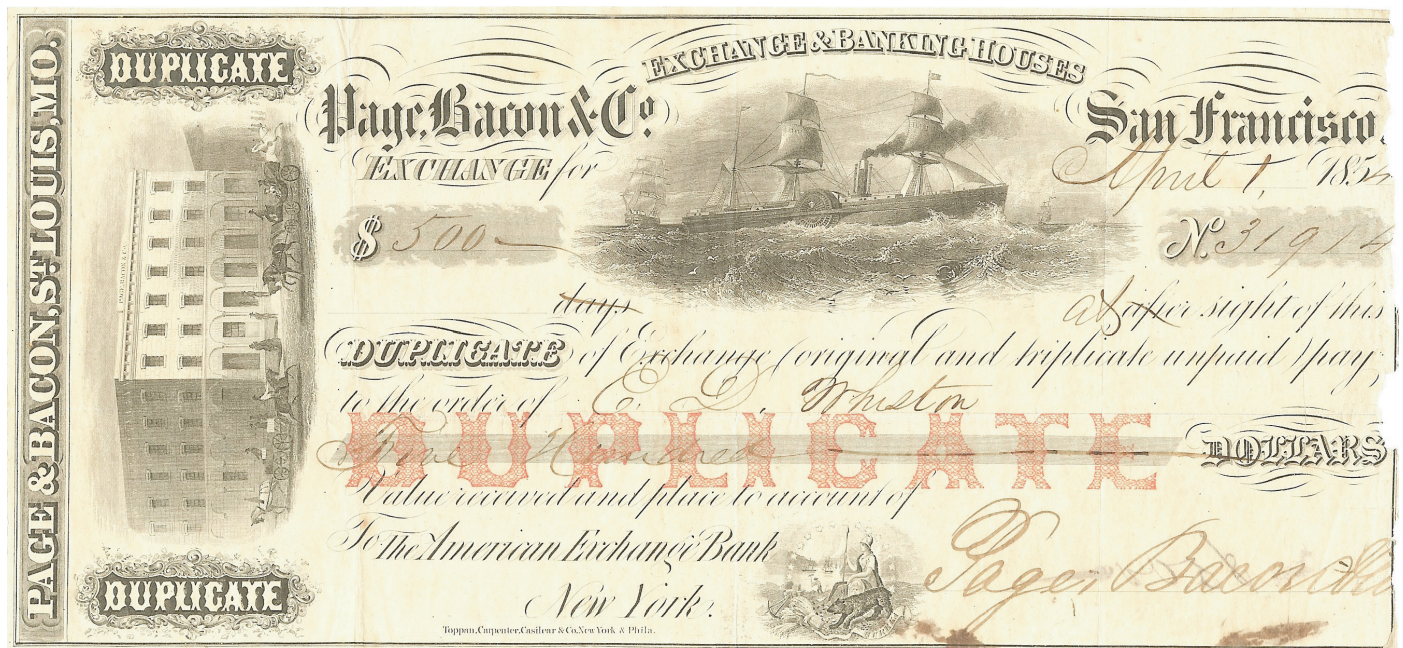 PAGE & BACON, ST. LOUIS, MO.
DUPLICATE
EXCHANGE & BANKING HOUSES
Page, Bacon & Co.
San Francisco,
EXCHANGE for
April 1, 1854
$ 500
No. 31914
PAGE, BACON & CO.
days
at after sight of this
DUPLICATE of Exchange (original and triplicate unpaid) pay
to the order of E. D. Whiston
DUPLICATE
Five Hundred DOLLARS
Value received and place to account of
To The American Exchange Bank
New York.
Page, Bacon & Co
DUPLICATE
Toppan, Carpenter, Casilear & Co. New York & Phila.